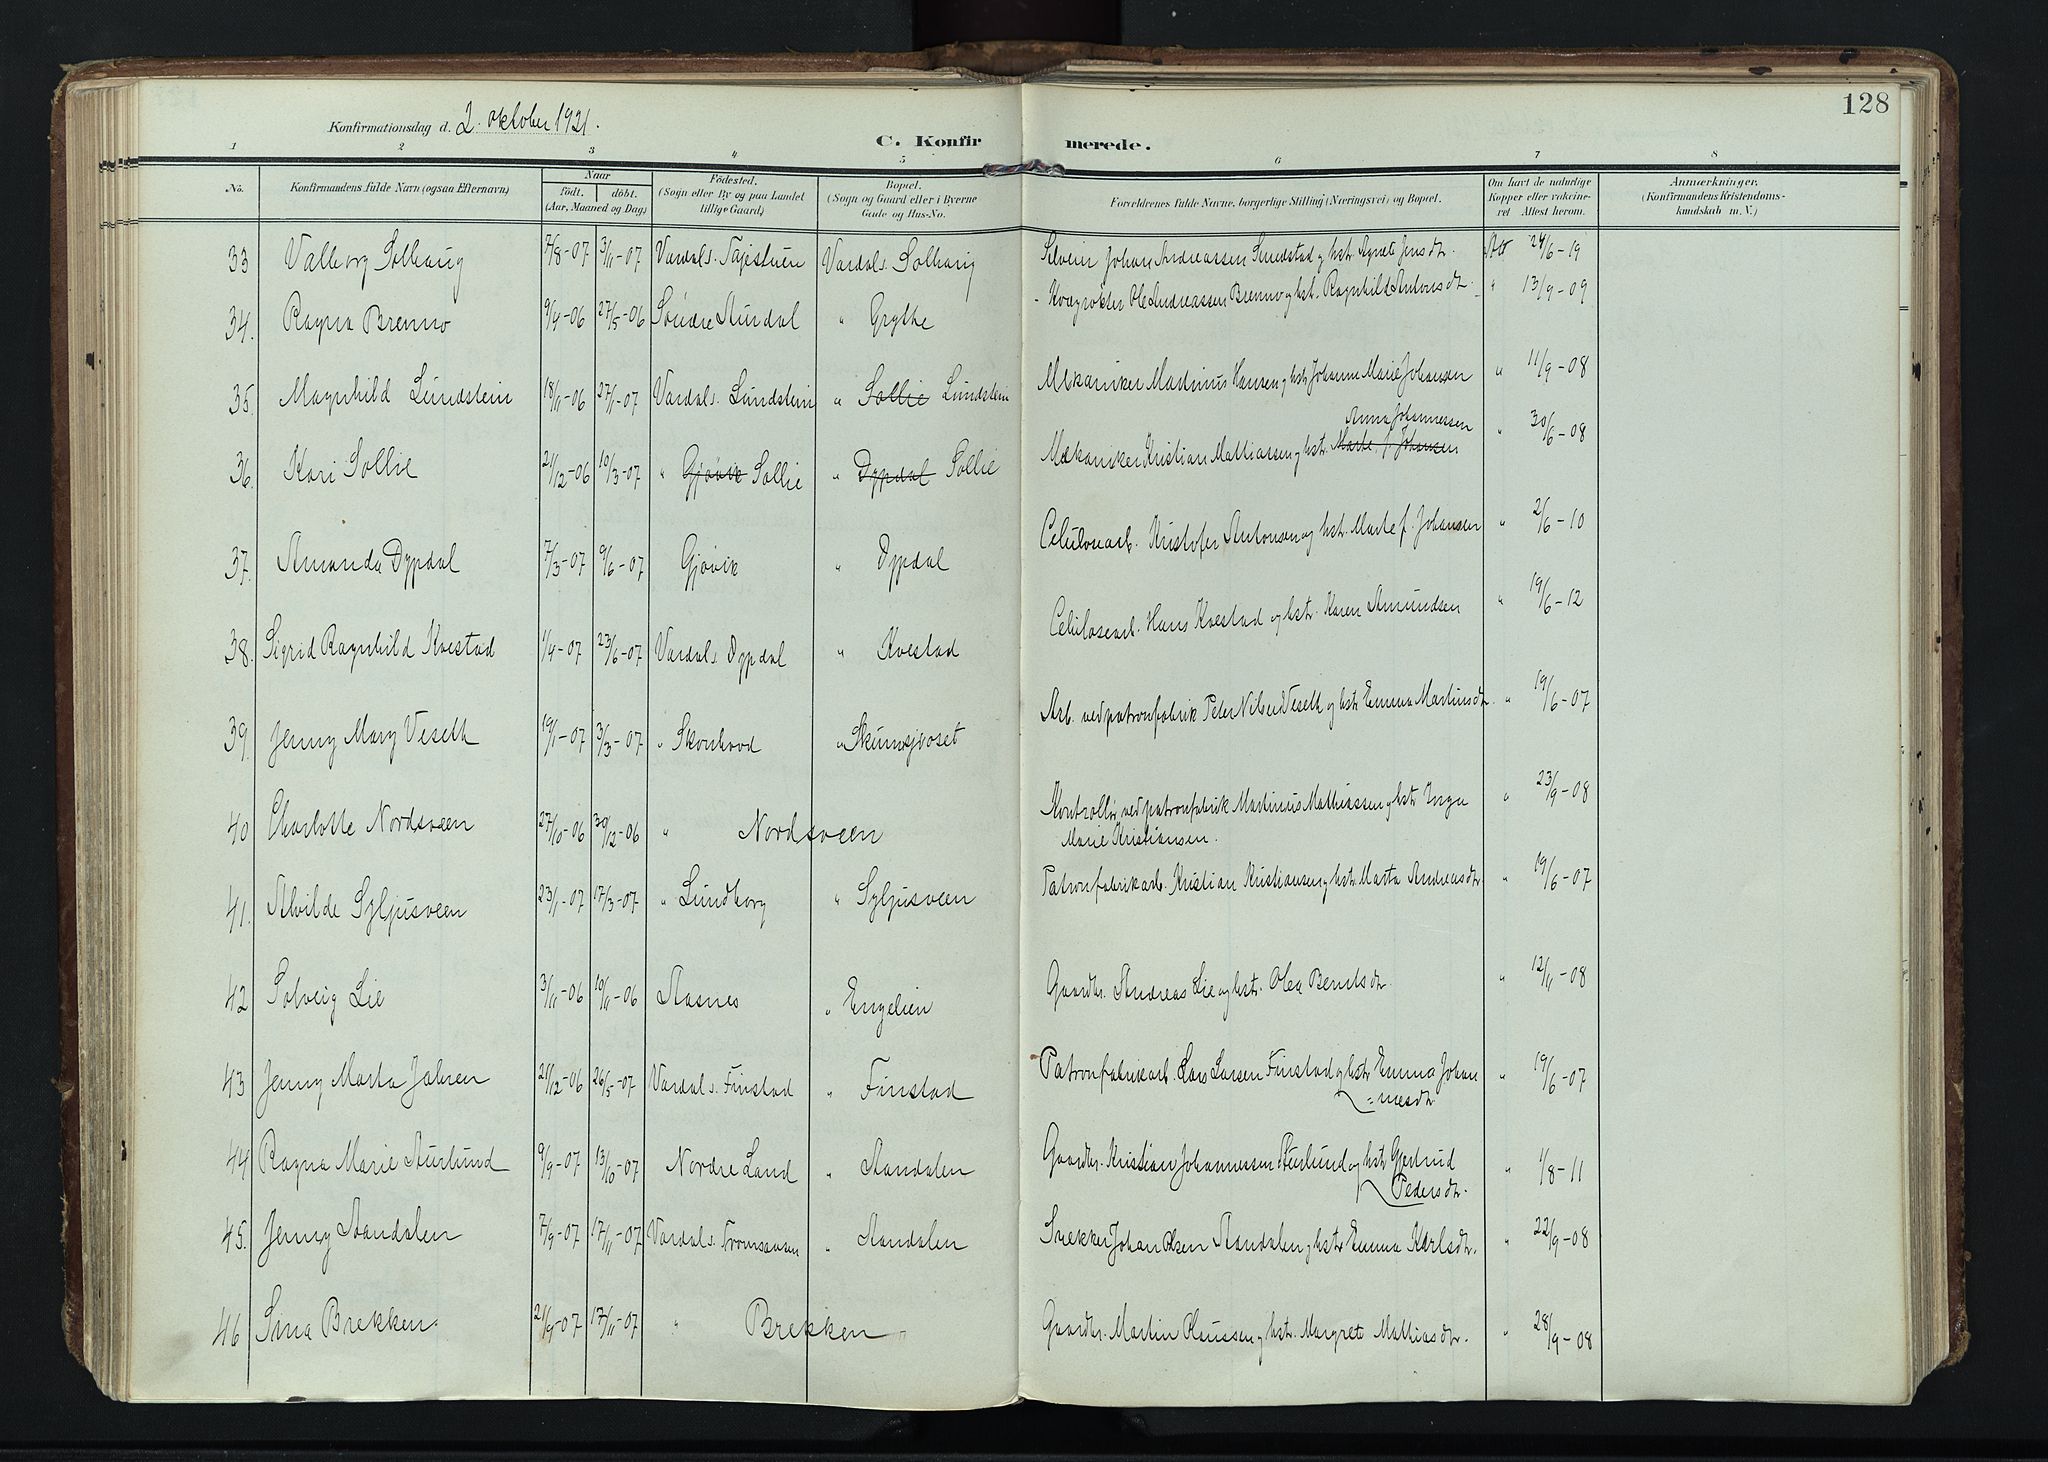 128
Konfirmationsdag d. 2. oktober 1921.
C. Konfirmerede.
1 2 3 4 5 6 7 8
No. Konfirmandens fulde Navn (ogsaa Efternavn) Naar født. døbt. (Aar, Maaned og Dag) Fødested. (Sogn eller By og paa Landet tillige Gaard) Bopæl. (Sogn og Gaard eller i Byerne Gade og Hus-No. Forældrenes fulde Navne, borgerlige Stilling (Næringsvei) og Bopæl. Om havt de naturlige Kopper eller vakcineret Attest herom. Anmærkninger. (Konfirmandens Kristendomskundskab m. V.)
33 Valborg Solhaug 7/8-07 3/11-07 Vardal s. Vardal s. Solhaug Johan Andreassen Smedstad og hstr. Agnete Jensdtr. Att 24/6-19
34. Ragna Brenno 9/4-06 27/5-06 Søndre Aurdal " Grythe Ole Andreassen Brenno og hst. Ragnhild Antonsdtr. " 13/9-09
35. Magnhild Lundstein 18/11-06 27/1-07 Vardal s. Lundstein " Sollie Lundstein Mekaniker Martinus Hansen og hstr. Johanne Marie Johansen " 11/9-08
36. Kari Sollie 21/12-06 10/3-07 " Gjøvik Sollie " Dypdal Sollie Mekaniker Kristian Mathiassen og hstr. Marte J. Johansen Anna Johannessen " 30/6-08
37. Amanda Dypdal 7/3-07 9/6-07 Gjøvik " Dypdal Celulosearb. Kristofer Antonsen og hstr. Marte J. Johansen " 2/6-10
38. Sigrid Ragnhild Kvestad 1/4-07 23/6-07 Vardal s. Dypdal " Kvestad Celulosearb. Hans Kvestad og hstr. Karen Amundsen " 19/6-12
39. Jenny Mary Veseth 19/1-07 3/3-07 " " Arb. ved patronfabrik Peter Veseth og hstr. Emma Martinsdtr. " 19/6-07
40 Charlotte Nordsveen 27/10-06 30/12-06 " Nordsveen Kontrollør ved patronfabrik Martinius Mathiassen og hstr. Inga
Marie Kristiansen. " 23/9-08
41. Alvilde Syljusveen 23/1-07 17/3-07 " Lundborg " Syljusveen Patronfabrikarb. Kristian Kristiansen og hstr. Marta Andreasdtr. " 19/6-07
42 Solveig Lie 3/11-06 10/11-06 Aasnes " Engelien Gaardbr. Andreas Lie og hstr. Olea Berntsdtr. " 12/11-08
43 Jenny Marta Jahren 21/12-06 26/5-07 Vardal s. Finstad " Finstad Patronfabrikarb. Lars Larsen Finstad og hstr. Emma Johan
=nesdtr. " 19/6-07
44 Ragna Marie Aurlund 9/9-07 13/10-07 Nordre Land " Aandalen Gaardbr. Kristian Johannessen Aurlund og hstr. Gjertrud
Pedersdtr. " 1/8-11
45. Jenny Aandalen 7/9-07 17/11-07 Vardal s. " Aandalen Snekker Johan Olsen Aandalen og hstr. Emma Karlsdtr. " 22/9-08
46 Sina Brekken 21/9-07 17/11-07 " Brekken " Gaardbr. Martin Olaussen og hstr. Margrete Mathiasdtr. " 28/9-08